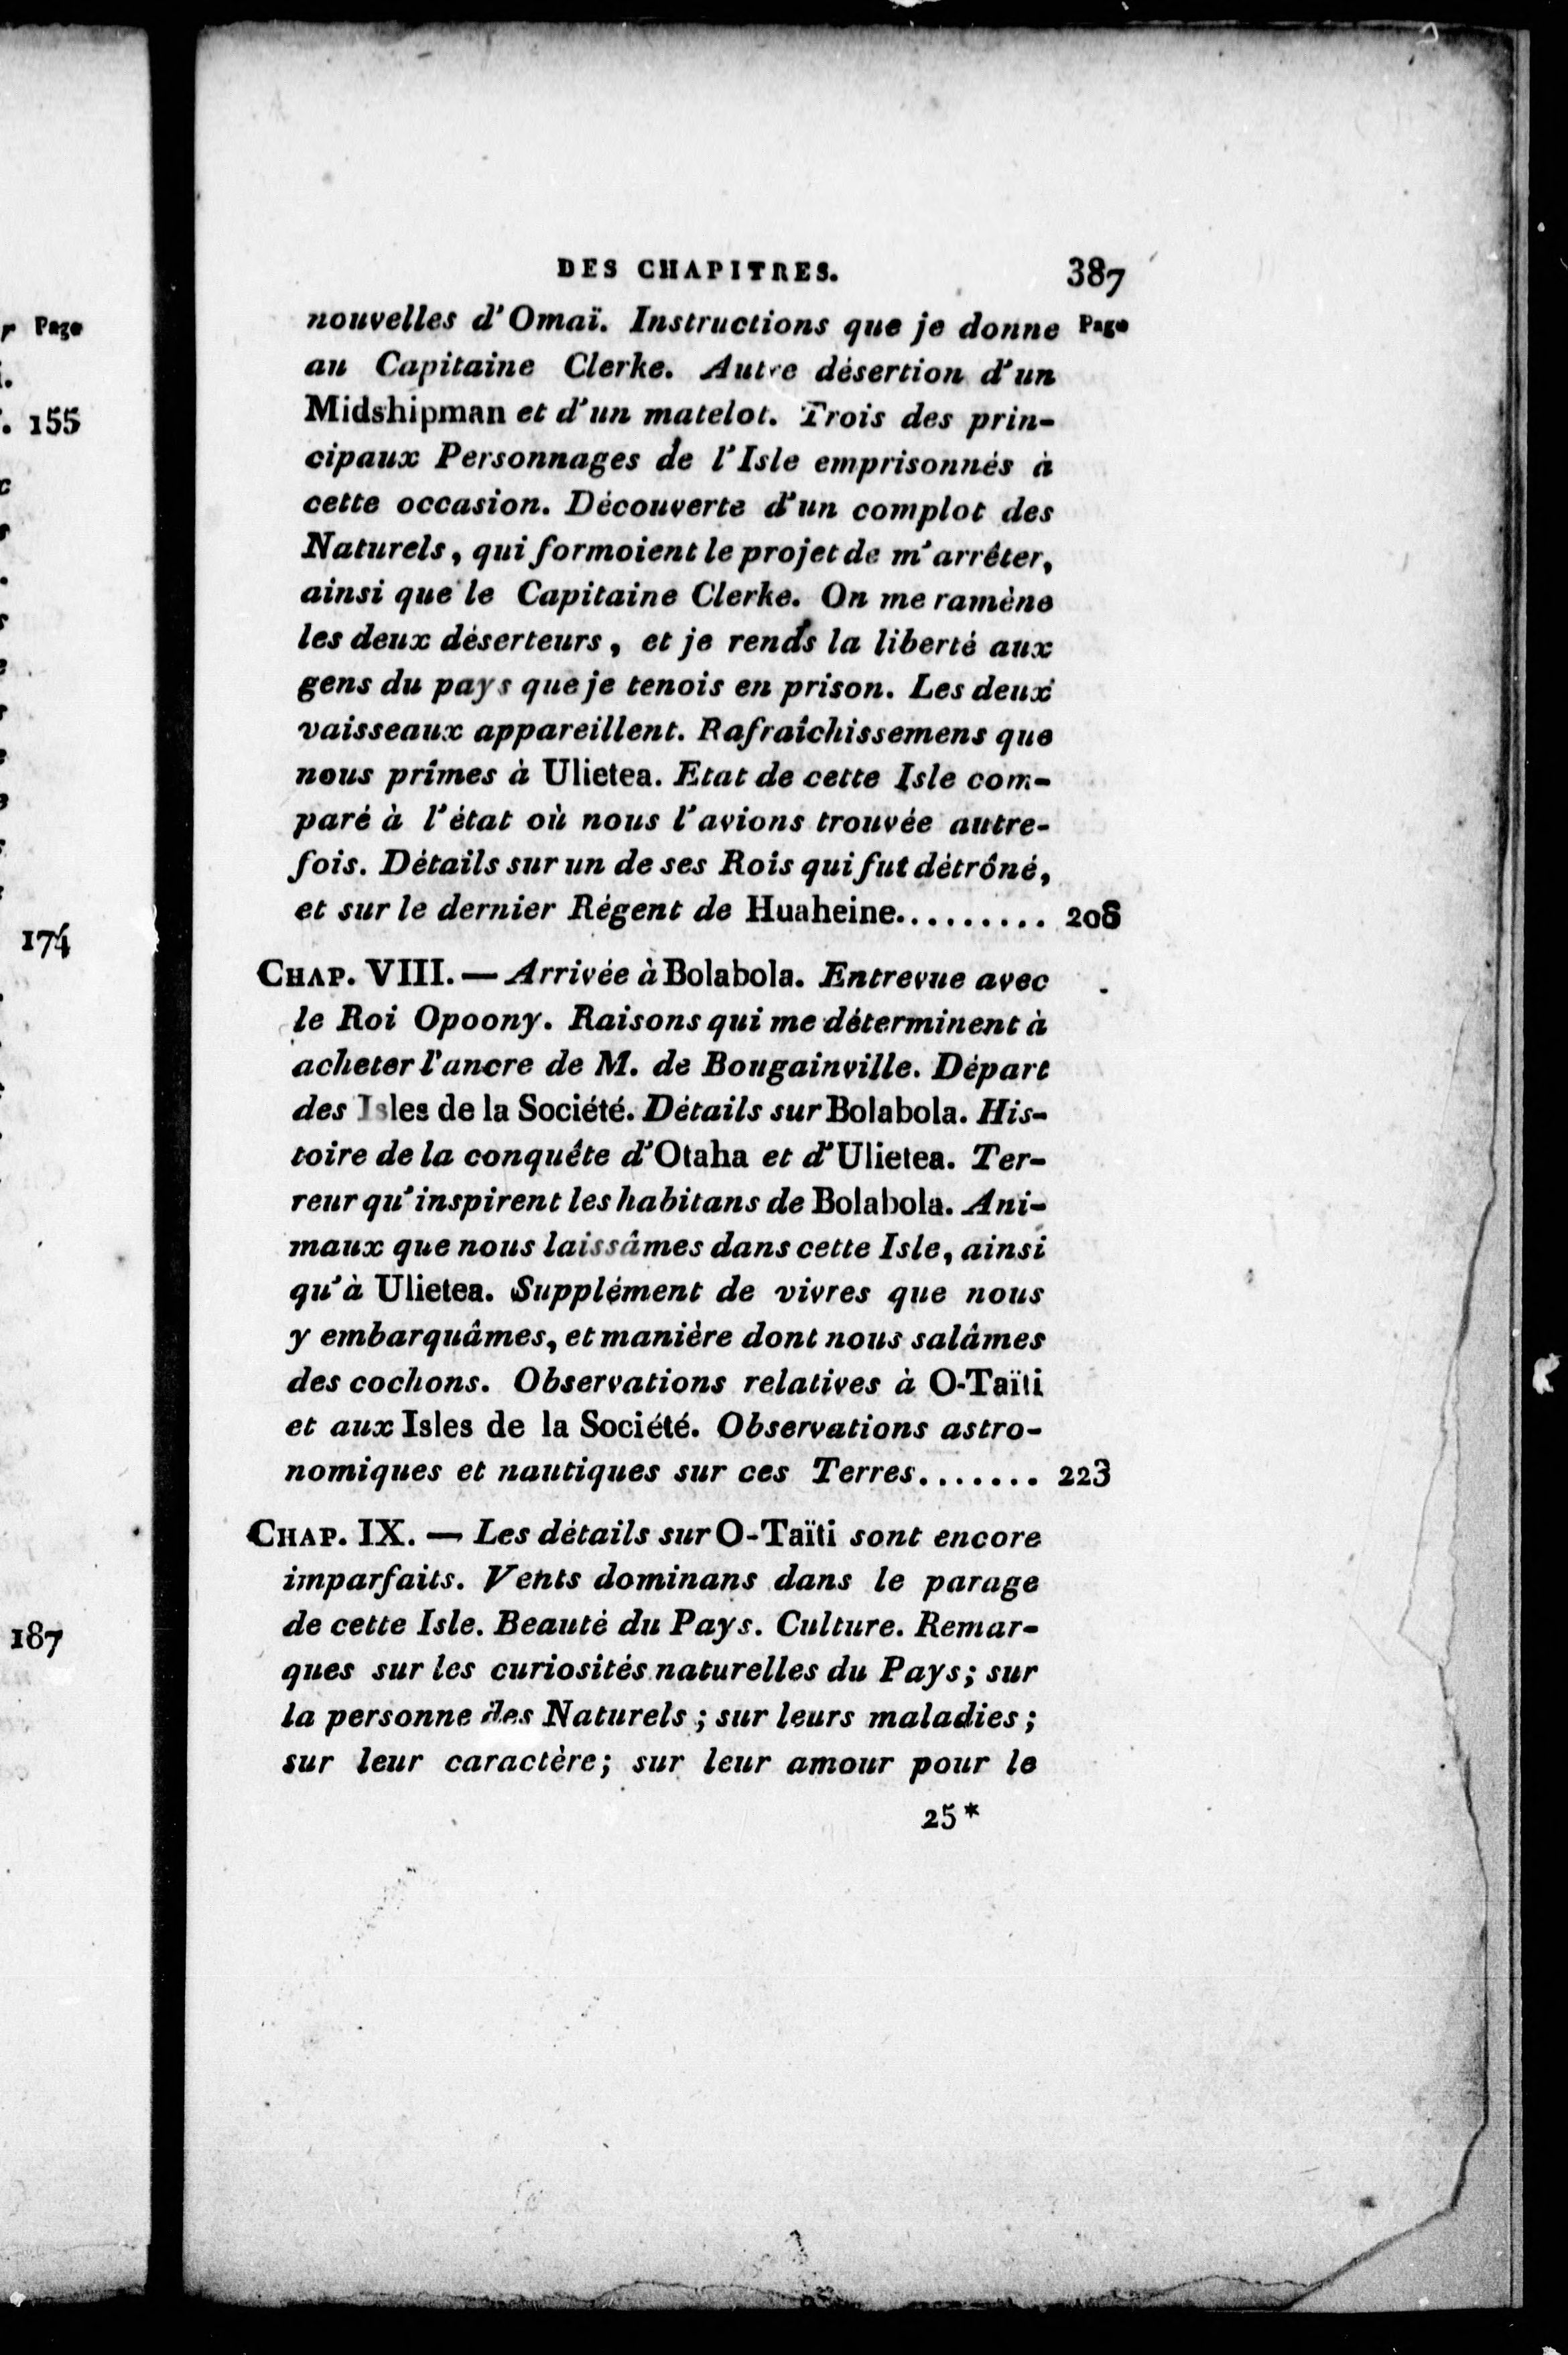 Page
155
174
187
DES CHAPITRES. 387
nouvelles d'Omaï. Instructions que je donne Page
au Capitaine Clerke. Autre désertion d'un
Midshipman et d'un matelot. Trois des prin-
cipaux Personnages de l'Isle emprisonnés à
cette occasion. Découverte d'un complot des
Naturels, qui formoient le projet de m'arrêter,
ainsi que le Capitaine Clerke. On me ramène
les deux déserteurs, et je rends la liberté aux
gens du pays que je tenois en prison. Les deux
vaisseaux appareillent. Rafraîchissemens que
nous prîmes à Ulietea. Etat de cette Isle com-
paré à l'état où nous l'avions trouvée autre-
fois. Détails sur un de ses Rois qui fut détrôné,
et sur le dernier Régent de Huaheine......... 208
CHAP. VIII. — Arrivée à Bolabola. Entrevue avec
le Roi Opoony. Raisons qui me déterminent à
acheter l'ancre de M. de Bougainville. Départ
des Isles de la Société. Détails sur Bolabola. His-
toire de la conquête d'Otaha et d'Ulietea. Ter-
reur qu'inspirent les habitans de Bolabola. Ani-
maux que nous laissâmes dans cette Isle, ainsi
qu'à Ulietea. Supplément de vivres que nous
y embarquâmes, et manière dont nous salâmes
des cochons. Observations relatives à O-Taïti
et aux Isles de la Société. Observations astro-
nomiques et nautiques sur ces Terres....... 223
CHAP. IX. — Les détails sur O-Taïti sont encore
imparfaits. Vents dominans dans le parage
de cette Isle. Beauté du Pays. Culture. Remar-
ques sur les curiosités naturelles du Pays; sur
la personne des Naturels; sur leurs maladies;
sur leur caractère; sur leur amour pour le
25*